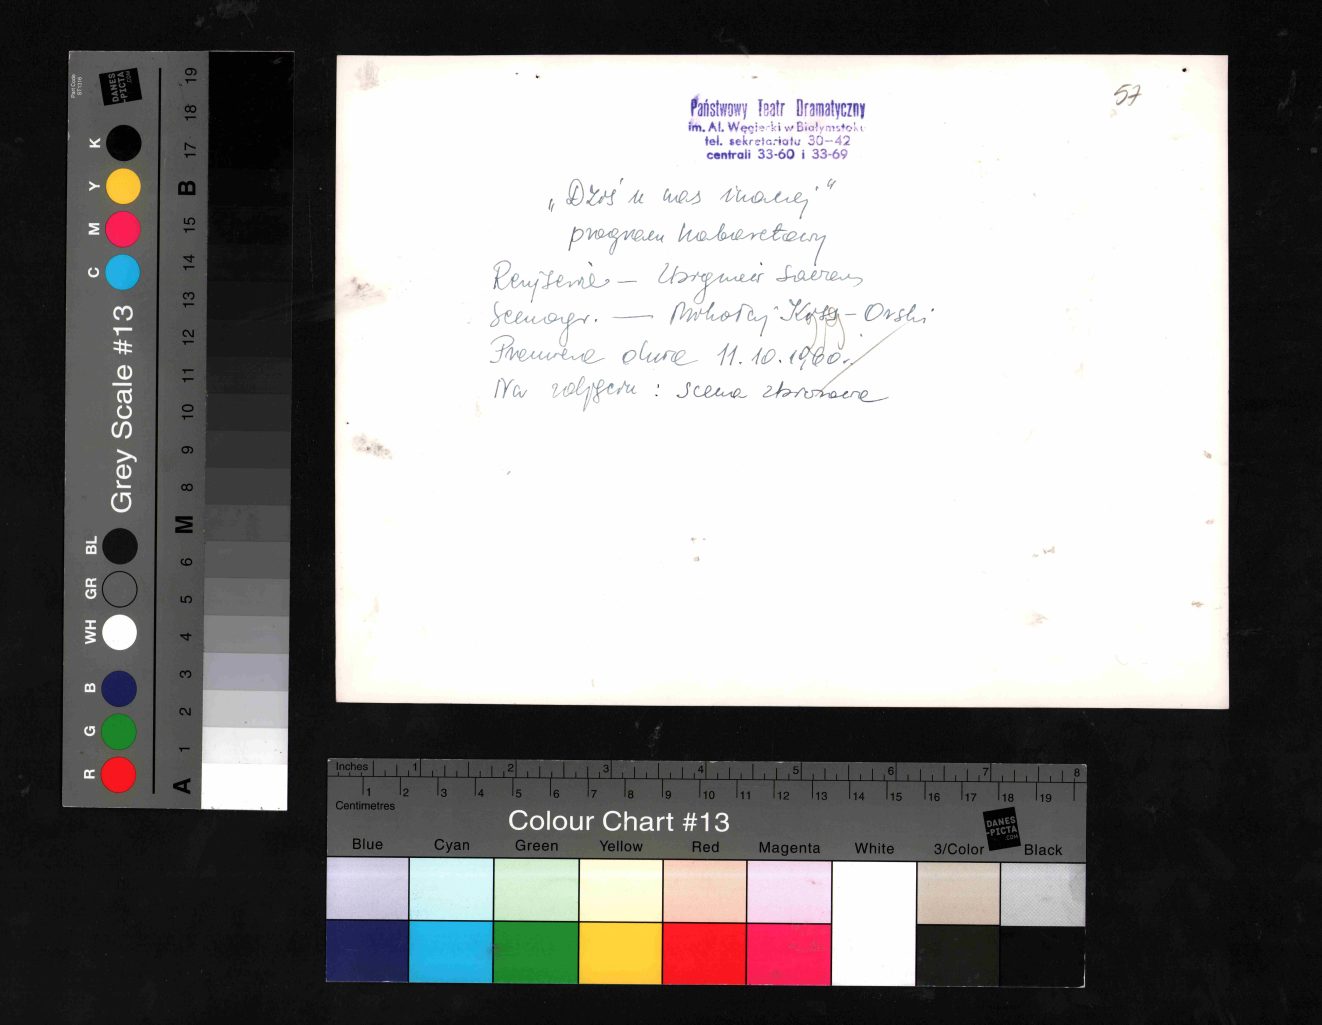 57
Państwowy Teatr Dramatyczny
im. Al. Węgierki w Białymstoku
tel. sekretariatu 30-42
centrali 33-60 i 33-69
„Dziś u nas inaczej”
program kabaretowy
Reżyseria — Zbigniew
Scenogr. — Mikołaj - Orski
Premiera dnia 11.10.1960r.
Na zdjęciu : scena zbiorowa
Part Code
DANES
-PICTA
.COM
Grey Scale #13
K Y M C BL GR WH B G R
19 18 17 B 15 14 13 12 11 10 9 8 M 6 5 4 3 2 1 A
Inches 1 2 3 4 5 6 7 8
1 2 3 4 5 6 7 8 9 10 11 12 13 14 15 16 17 18 19
Centimetres
Colour Chart #13
DANES
-PICTA
.COM
Blue Cyan Green Yellow Red Magenta White 3/Color Black